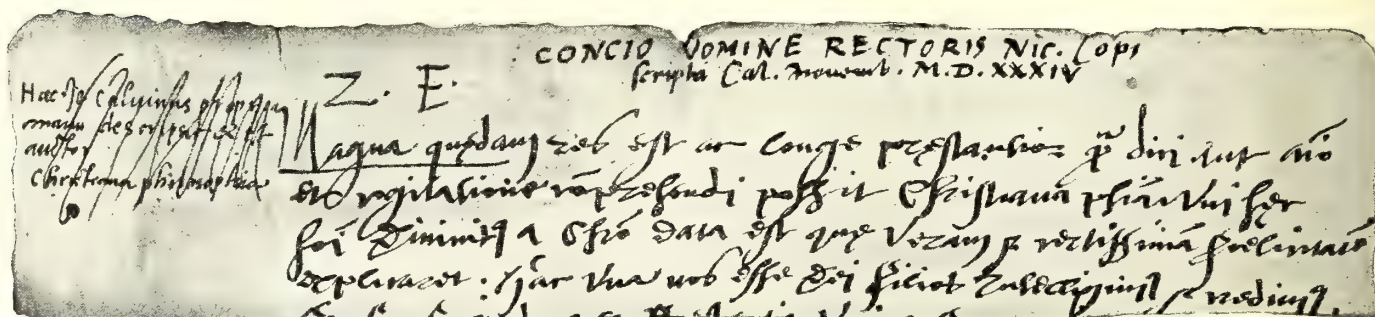 CONCIO DOMINE RECTORIS Nic. Copi
scripta Cal. Novemb. M.D.XXXIV
Z. E.
Haec Jo Calvinus propria
manu descripsit, est
auctor
Christiana philosophia
Magna quędam res est ac longe pręstantior q̃ dici aut aĩo
et cogitatione cõprehendi possit Christiana phĩa. Uni hęc
hoĩ divinitus a Chrõ data est quę veram et certissimã fœlicitatẽ
explicaret. Hac una nos esse dei filios intelligimus et credimus.